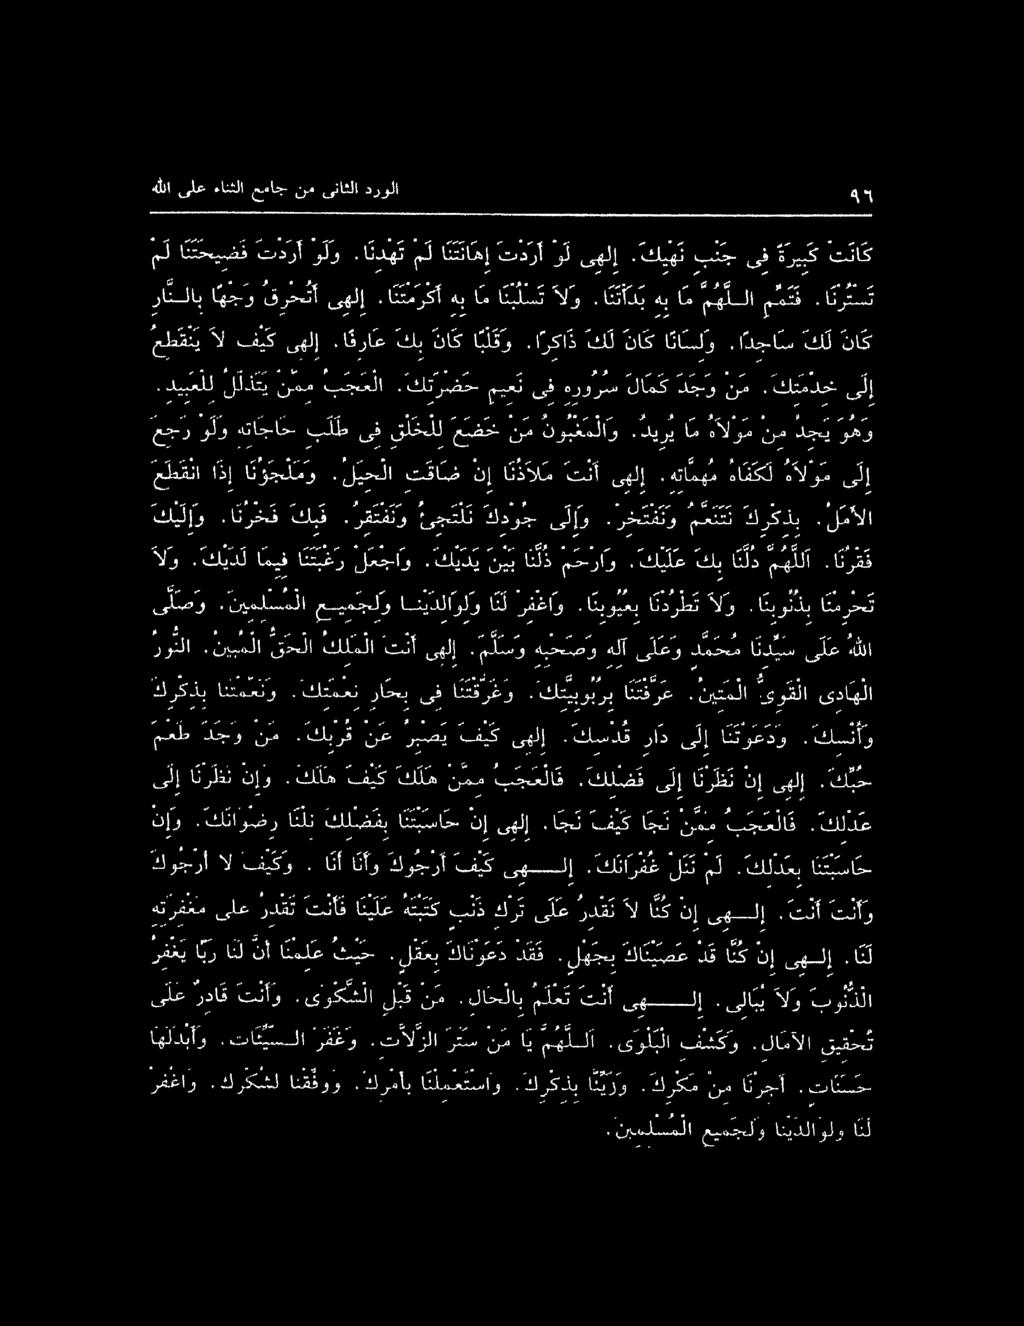 ٩٦ الورد الثانى من جامع الثناء على الله
كَانَتْ كَبِيرَةً فِى جَنْبِ نَهْيِكَ. إِلهِى لَوْ أَرَدْتَ إِهَانَتَنَا لَمْ تَهْدِنَا. وَلَوْ أَرَدْتَ فَضِيحَتَنَا لَمْ
تَسْتُرْنَا. فَتَمِّمِ اللَّهُمَّ مَا بِهِ بَدَأْتَنَا. وَلاَ تَسْلُبْنَا مَا بِهِ أَكْرَمْتَنَا. إِلهِى أَتُحْرِقُ وَجْهًا بِالنَّارِ
كَانَ لَكَ سَاجِدًا. وَلِسَانًا كَانَ لَكَ ذَاكِرًا. وَقَلْبًا كَانَ بِكَ عَارِفًا. إِلهِى كَيْفَ لاَ يَنْقَطِعُ
إِلَى خِدْمَتِكَ. مَنْ وَجَدَ كَمَالَ سُرُورِهِ فِى نَعِيمِ حَضْرَتِكَ. الْعَجَبُ مِمَّنْ يَتَذَلَّلُ لِلْعَبِيدِ.
وَهُوَ يَجِدُ مِنْ مَوْلاَهُ مَا يُرِيدُ. وَالْمَغْبُونُ مَنْ خَضَعَ لِلْخَلْقِ فِى طَلَبِ حَاجَاتِهِ وَلَوْ رَجَعَ
إِلَى مَوْلاَهُ لَكَفَاهُ مُهِمَّاتِهِ. إِلهِى أَنْتَ مَلاَذُنَا إِنْ ضَاقَتِ الْحِيَلُ. وَمَلْجَؤُنَا إِذَا انْقَطَعَ
الأَمَلُ. بِذِكْرِكَ نَتَنَعَّمُ وَنَفْتَخِرُ. وَإِلَى جُودِكَ نَلْتَجِئُ وَنَفْتَقِرُ. فَبِكَ فَخْرُنَا. وَإِلَيْكَ
فَقْرُنَا. اَللَّهُمَّ دُلَّنَا بِكَ عَلَيْكَ. وَارْحَمْ ذُلَّنَا بَيْنَ يَدَيْكَ. وَاجْعَلْ رَغْبَتَنَا فِيمَا لَدَيْكَ. وَلاَ
تَحْرِمْنَا بِذُنُوبِنَا. وَلاَ تَطْرُدْنَا بِعُيُوبِنَا. وَاغْفِرْ لَنَا وَلِوَالِدَيْنَا وَلِجَمِيعِ الْمُسْلِمِينَ. وَصَلَّى
اللهُ عَلَى سَيِّدِنَا مُحَمَّدٍ وَعَلَى آلِهِ وَصَحْبِهِ وَسَلَّمَ. إِلهِى أَنْتَ الْمَلِكُ الْحَقُّ الْمُبِينُ. النُّورُ
الْهَادِى الْقَوِىُّ الْمَتِينُ. عَرَّفْتَنَا بِرُبُوبِيَّتِكَ. وَغَرَّقْتَنَا فِى بِحَارِ نِعْمَتِكَ. وَنَعَّمْتَنَا بِذِكْرِكَ
وَأُنْسِكَ. وَدَعَوْتَنَا إِلَى دَارِ قُدْسِكَ. إِلهِى كَيْفَ يَصْبِرُ عَنْ قُرْبِكَ. مَنْ وَجَدَ طَعْمَ
حُبِّكَ. إِلهِى إِنْ نَظَرْنَا إِلَى فَضْلِكَ. فَالْعَجَبُ مِمَّنْ هَلَكَ كَيْفَ هَلَكَ. وَإِنْ نَظَرْنَا إِلَى
عَدْلِكَ. فَالْعَجَبُ مِمَّنْ نَجَا كَيْفَ نَجَا. إِلهِى إِنْ حَاسَبْتَنَا بِفَضْلِكَ نِلْنَا رِضْوَانَكَ. وَإِنْ
حَاسَبْتَنَا بِعَدْلِكَ. لَمْ نَنَلْ غُفْرَانَكَ. إِلهِى كَيْفَ أَرْجُوكَ وَأَنَا أَنَا . وَكَيْفَ لا أَرْجُوكَ
وَأَنْتَ أَنْتَ. إِلهِى إِنْ كُنَّا لاَ نَقْدِرُ عَلَى تَرْكِ ذَنْبٍ كَتَبْتَهُ عَلَيْنَا فَأَنْتَ تَقْدِرُ على مَغْفِرَتِهِ
لَنَا. إِلهِى إِنْ كُنَّا قَدْ عَصَيْنَاكَ بِجَهْلٍ. فَقَدْ دَعَوْنَاكَ بِعَقْلٍ. حَيْثُ عَلِمْنَا أَنَّ لَنَا رَبًّا يَغْفِرُ
الذُّنُوبَ وَلاَ يُبَالِى. إِلهِى أَنْتَ تَعْلَمُ بِالْحَالِ. مَنْ قَبْلِ الشَّكْوَى. وَأَنْتَ قَادِرٌ عَلَى
تَحْقِيقِ الآمَالِ. وَكَشْفِ الْبَلْوَى. اَللَّهُمَّ يَا مَنْ سَتَرَ الزَّلاَّتِ. وَغَفَرَ السَّيِّئَاتِ. وَأَبْدَلَهَا
حَسَنَاتٍ. أَجِرْنَا مِنْ مَكْرِكَ. وَزَيِّنَّا بِذِكْرِكَ. وَاسْتَعْمِلْنَا بِأَمْرِكَ. وَوَفِّقْنَا لِشُكْرِكَ. وَاغْفِرْ
لَنَا وَلِوَالِدَيْنَا وَلِجَمِيعِ الْمُسْلِمِينَ.